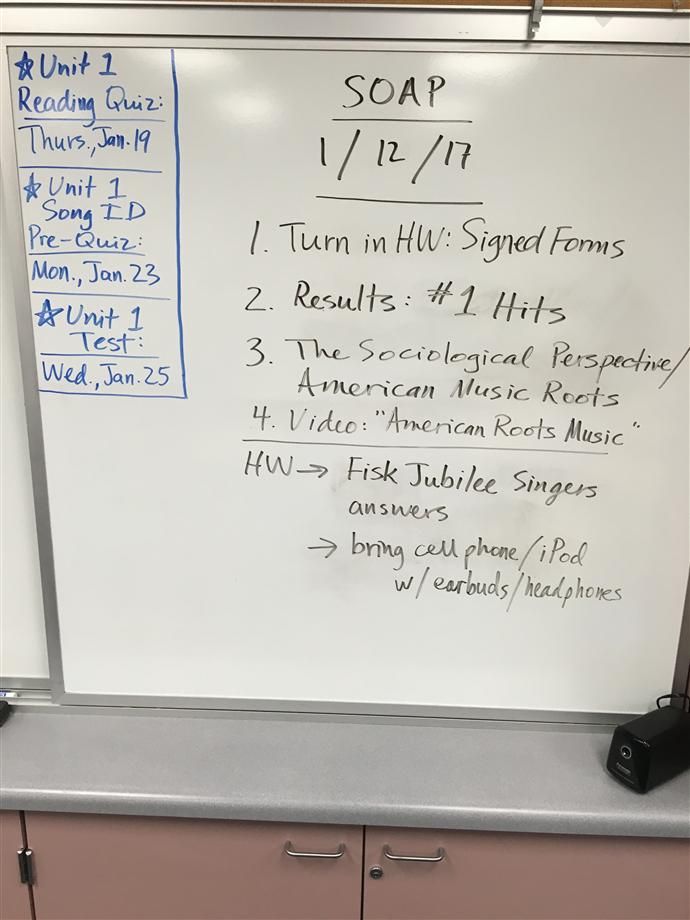 ☆Unit 1
Reading Quiz:
Thurs., Jan. 19
☆Unit 1
Song ID
Pre-Quiz:
Mon., Jan. 23
☆Unit 1
Test:
Wed., Jan. 25
SOAP
1/12/17
1. Turn in HW: Signed Forms
2. Results: #1 Hits
3. The Sociological Perspective/
American Music Roots
4. Video: "American Roots Music"
HW → Fisk Jubilee Singers
answers
→ bring cell phone/iPod
w/ earbuds/headphones